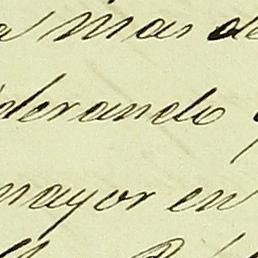 a mas de
derando
mayor en